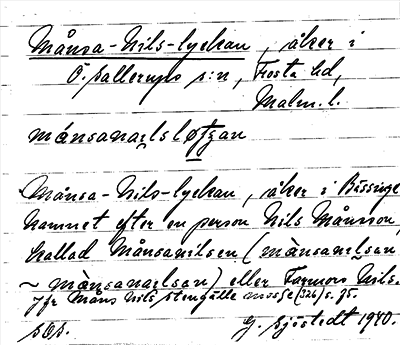 Månsa-Nils-lyckan, åker i
Ö. Sallerups s:n, Frosta hd,
Malm. l.
månsanɐlsløt̯ɟan
Månsa-Nils-lyckan, åker i Bässinge
namnet efter en person Nils Månsson,
kallad Månsanilsen (mànsanɐlsən
~ mànsanɐlsən) eller Farmors Nils.
Jfr Måns Nils stengälle mosse (326) s. 75.
søs. G. Sjöstedt 1940.